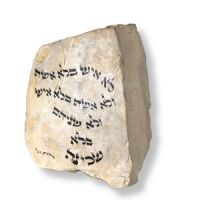 לא איש בלא אשה
ולא אשה בלא איש
ולא שניהם
בלא
שכינה